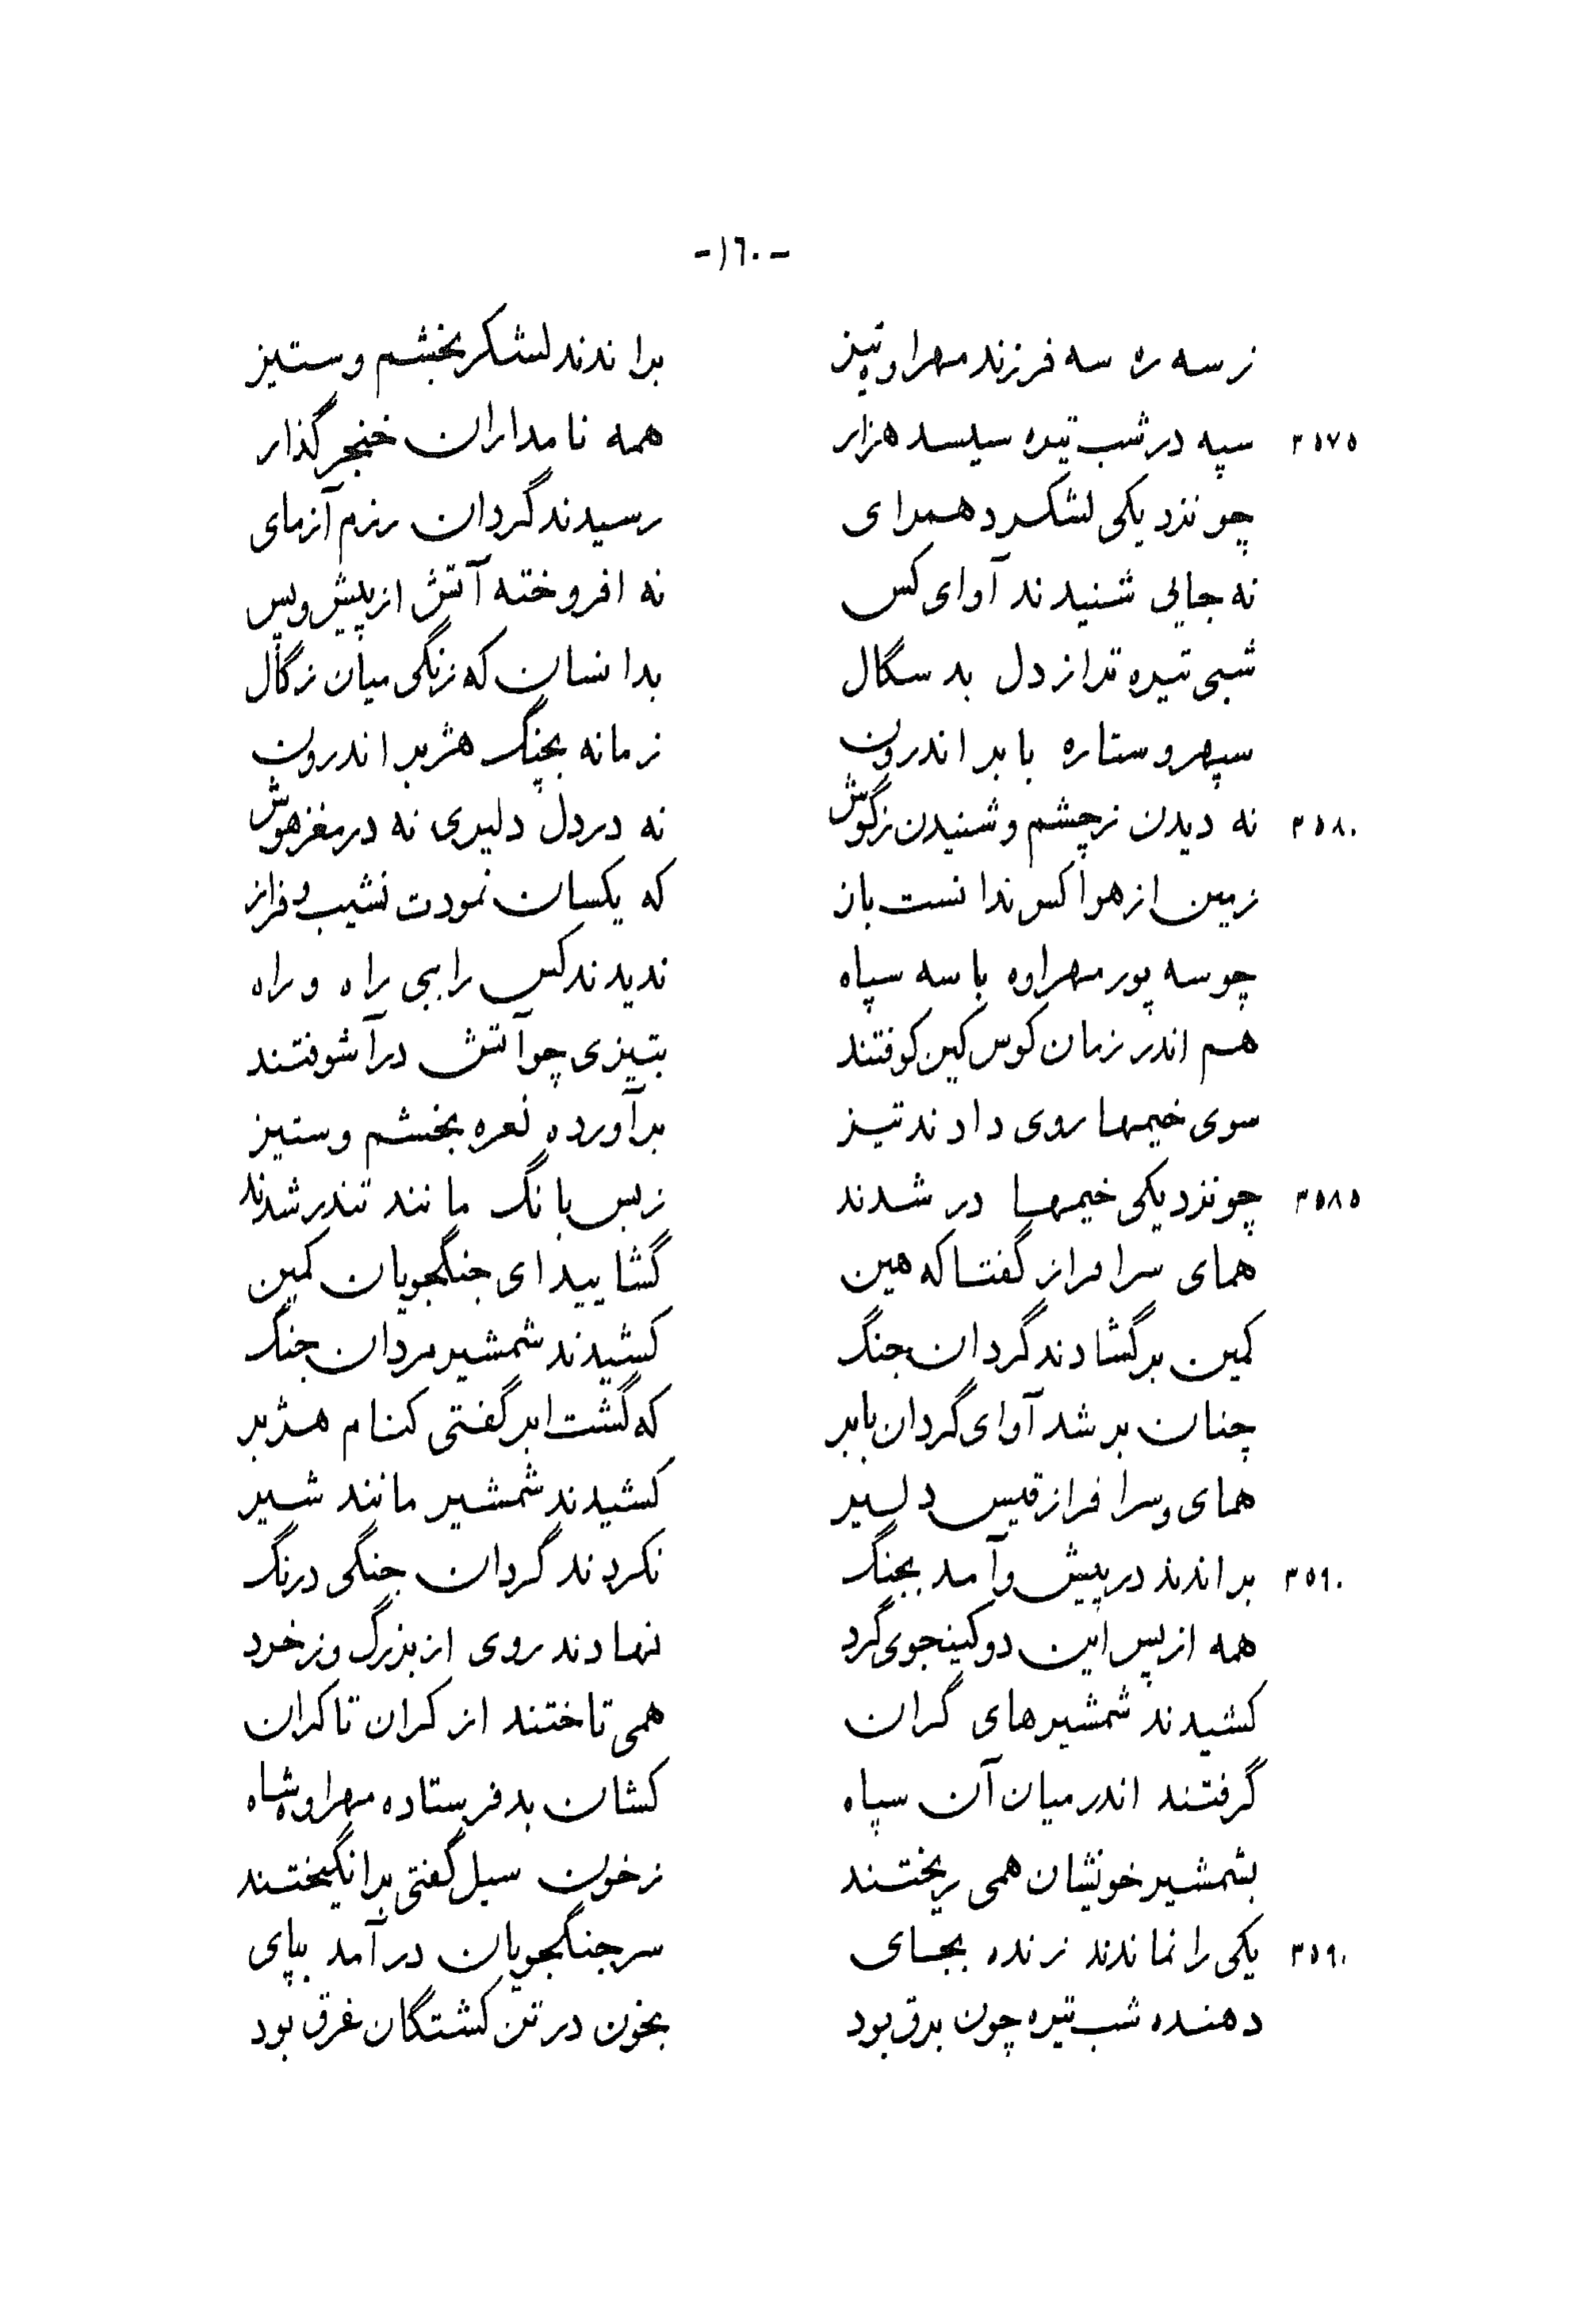 -١٦٠-
ز سه ره سه فرزند مهراوه تیز براندند لشکر بخشم و ستیز
٣٥٧٥ سپه در شب تیره سیسد هزار همه نامداران خنجر گذار
چو نزدیکی لشکر دهمرای رسیدند گردان رزم آزمای
نه جایی شنیدند آوای کس نه افروخته آتش از پیش و پس
شبی تیره تر از دل بد سگال بدانسان که زنگی میان زگال
سپهر و ستاره بابر اندرون زمانه بچنگ هژبر اندرون
٣٥٨٠ نه دیدن ز چشم و شنیدن ز گوش نه در دل دلیری نه در مغز هوش
زمین از هوا کس ندانست باز که یکسان نمودت نشیب و فراز
چو سه پور مهراوه با سه سپاه ندیدند کس را ببی راه و راه
هم اندر زمان کوس کین کوفتند بتیزی چو آتش درآشوفتند
سوی خیمها روی دادند تیز برآورده نعره بخشم و ستیز
٣٥٨٥ چو نزدیکی خیمها در شدند ز بس بانگ مانند تندر شدند
همای سرافراز گفتا که هین گشایید ای جنگجویان کمین
کمین برگشادند گردان جنگ کشیدند شمشیر مردان جنگ
چنان بر شد آوای گردان بابر که گشت ابر گفتی کنام هژبر
همای و سرافراز قیس دلیر کشیدند شمشیر مانند شیر
٣٥٩٠ براندند در پیش و آمد بجنگ نکردند گردان جنگی درنگ
همه از پس این دو کینجوی گرد نهادند روی از بزرگ و ز خرد
کشیدند شمشیرهای گران همی تاختند از کران تا کران
گرفتند اندر میان آن سپاه کشان بد فرستاده مهراوه شاه
بشمشیر خونشان همی ریختند ز خون سیل گفتی برانگیختند
٣٥٩٠ یکی را نماندند زنده بجای سر جنگجویان درآمد بپای
دهنده شب تیره چون برق بود بخون در تن کشتگان غرق بود